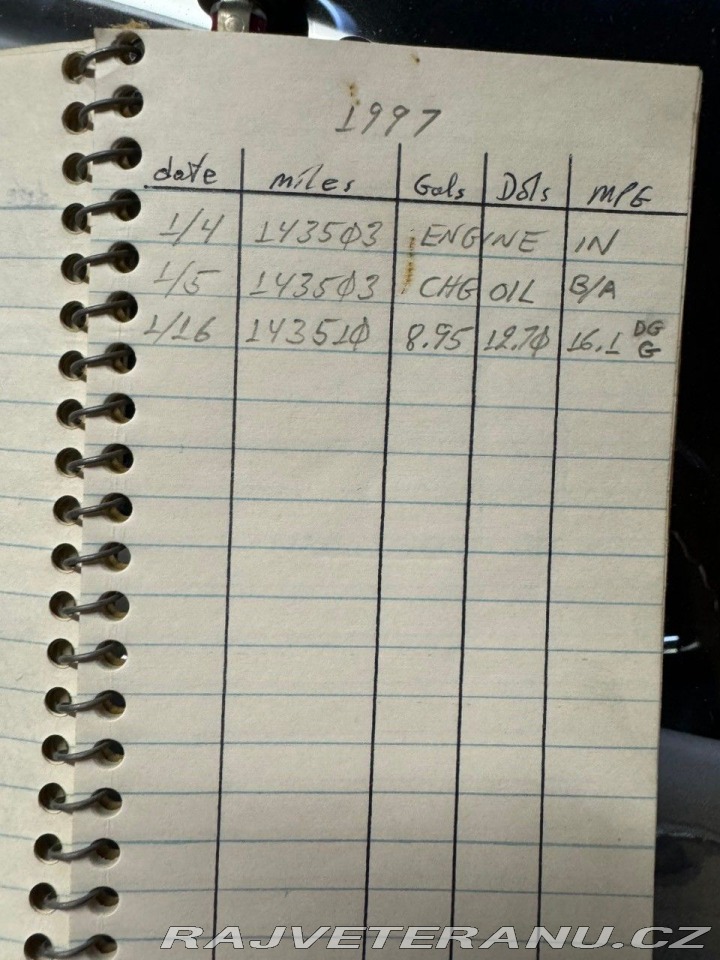 1997
date miles Gals Dols MPG
1/4 143503 ENGINE IN
1/5 143503 CHG OIL B/A
1/16 143510 8.95 12.70 16.1 DG G
RAJVETERANU.CZ